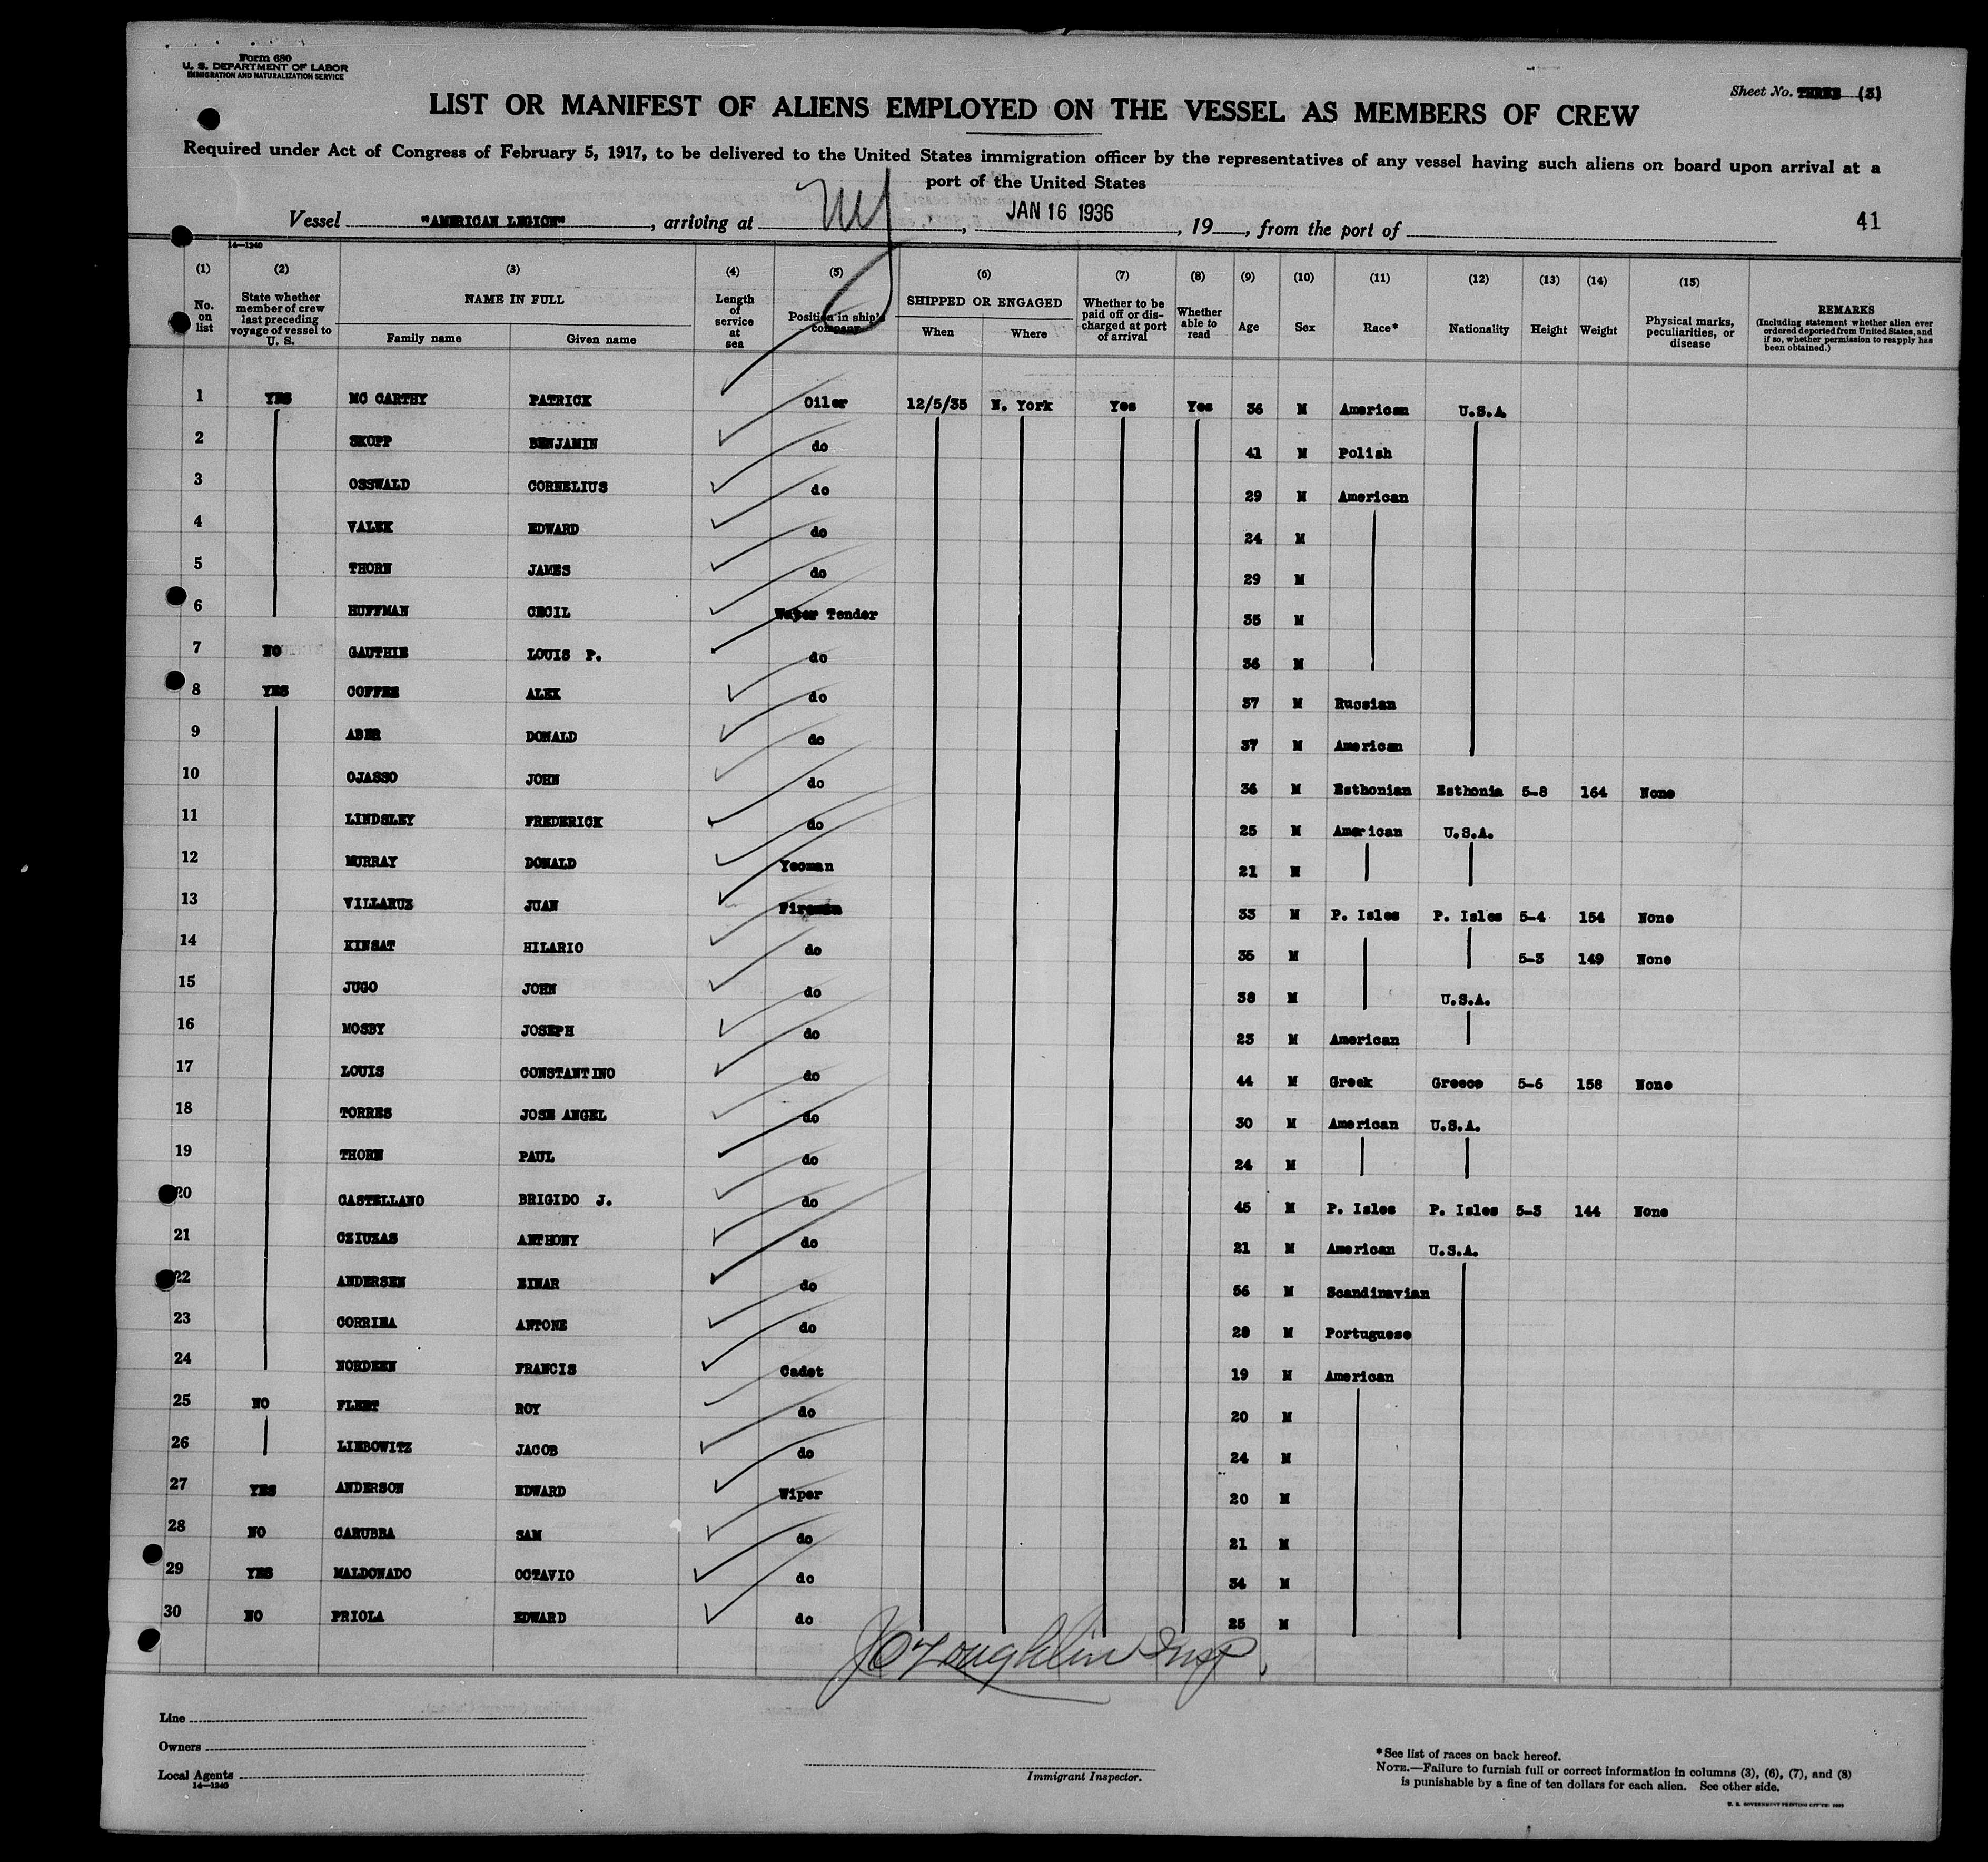 Form 680
U. S. DEPARTMENT OF LABOR
IMMIGRATION AND NATURALIZATION SERVICE
Sheet No. THREE (3)
LIST OR MANIFEST OF ALIENS EMPLOYED ON THE VESSEL AS MEMBERS OF CREW
Required under Act of Congress of February 5, 1917, to be delivered to the United States immigration officer by the representatives of any vessel having such aliens on board upon arrival at a
port of the United States
Vessel "AMERICAN LEGION", arriving at NY, JAN 16 1936, 19, from the port of
41
14—1240
(1) (2) (3) (4) (5) (6) (7) (8) (9) (10) (11) (12) (13) (14) (15)
No. on list
State whether member of crew last preceding voyage of vessel to U. S.
NAME IN FULL
Family name Given name
Length of service at sea
Position in ship's company
SHIPPED OR ENGAGED
When Where
Whether to be paid off or discharged at port of arrival
Whether able to read
Age
Sex
Race*
Nationality
Height
Weight
Physical marks, peculiarities, or disease
REMARKS
(Including statement whether alien ever ordered deported from United States, and if so, whether permission to reapply has been obtained.)
1 YES MC CARTHY PATRICK Oiler 12/5/35 N. York Yes Yes 36 M American U.S.A
2 SKOPP BENJAMIN do 41 M Polish
3 OSSWALD CORNELIUS do 29 M American
4 VALEK EDWARD do 24 M
5 THORN JAMES do 29 M
6 HUFFMAN CECIL Water Tender 35 M
7 NO GAUTHIE LOUIS P. do 36 M
8 YES COFFEE ALEX do 37 M Russian
9 ABER DONALD do 37 M American
10 OJASSO JOHN do 36 M Esthonian Esthonia 5-8 164 None
11 LINDSLEY FREDERICK do 25 M American U.S.A.
12 MURRAY DONALD Yeoman 21 M
13 VILLARUZ JUAN Fireman 33 M P. Isles P. Isles 5-4 154 None
14 KINSAT HILARIO do 35 M 5-3 149 None
15 JUGO JOHN do 38 M U.S.A.
16 MOSBY JOSEPH do 23 M American
17 LOUIS CONSTANTINO do 44 M Greek Greece 5-6 158 None
18 TORRES JOSE ANGEL do 30 M American U.S.A.
19 THORN PAUL do 24 M
20 CASTELLANO BRIGIDO J. do 45 M P. Isles P. Isles 5-3 144 None
21 CZIUZAS ANTHONY do 21 M American U.S.A.
22 ANDERSEN EINAR do 56 M Scandinavian
23 CORRIEA ANTONE do 28 M Portuguese
24 NORDEEN FRANCIS Cadet 19 M American
25 NO FLEET ROY do 20 M
26 LIEBOWITZ JACOB do 24 M
27 YES ANDERSON EDWARD Wiper 20 M
28 NO CARUBBA SAM do 21 M
29 YES MALDONADO OCTAVIO do 34 M
30 NO PRIOLA EDWARD do 25 M
J O'Loughlin Insp
Line
Owners
Local Agents
14—1240
Immigrant Inspector.
*See list of races on back hereof.
NOTE.—Failure to furnish full or correct information in columns (3), (6), (7), and (8)
is punishable by a fine of ten dollars for each alien. See other side.